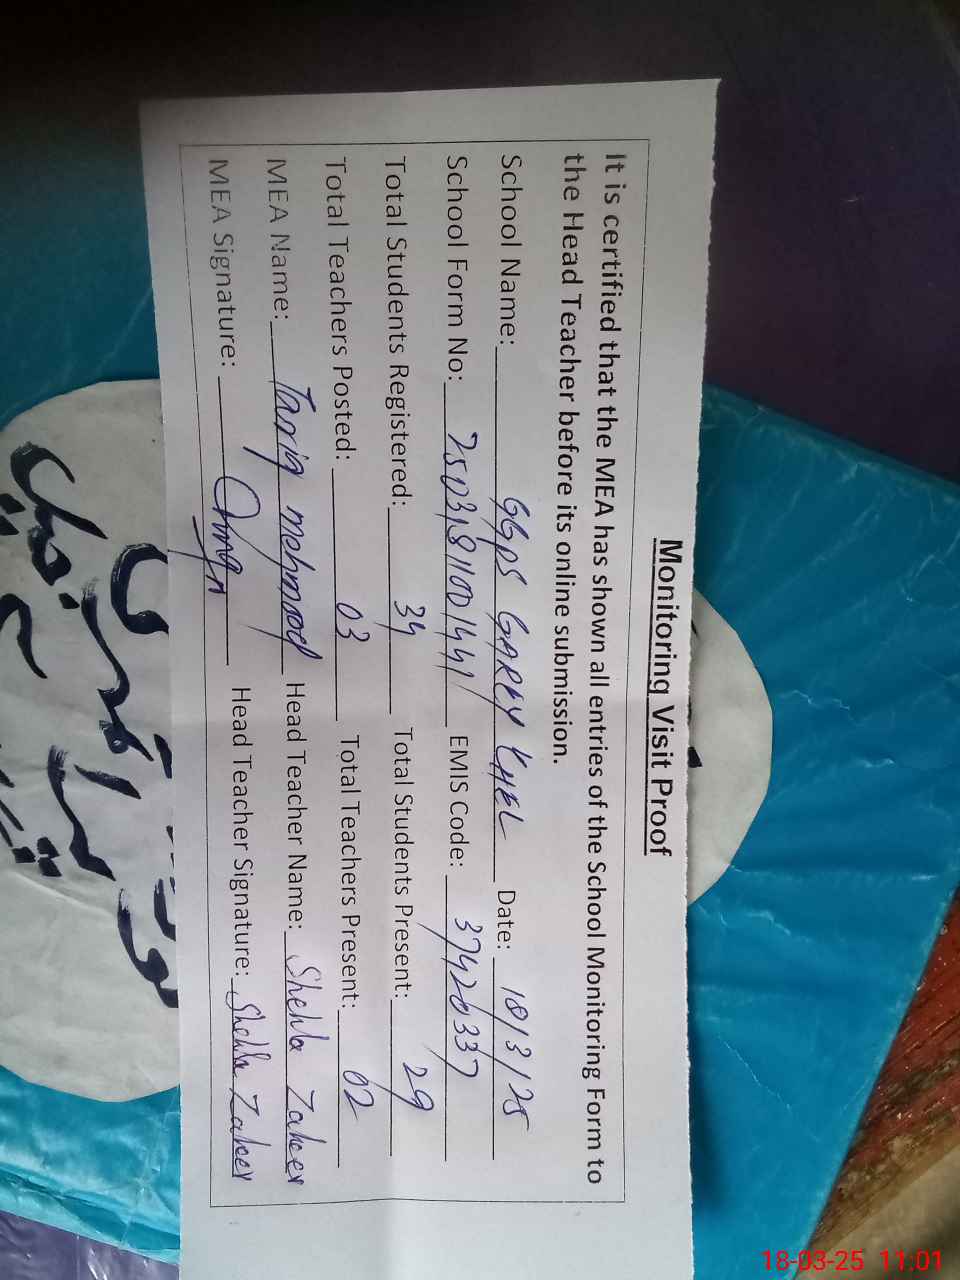 Monitoring Visit Proof
It is certified that the MEA has shown all entries of the School Monitoring Form to
the Head Teacher before its online submission.
School Name: GGPS GARHY KHEL Date: 18/3/25
School Form No: 2503181001441 EMIS Code: 37420337
Total Students Registered: 34 Total Students Present: 29
Total Teachers Posted: 03 Total Teachers Present: 02
MEA Name: Tariq mehmood Head Teacher Name: Shehla Zaheer
MEA Signature: Head Teacher Signature: Shehla Zaheer
18-03-25 11:01